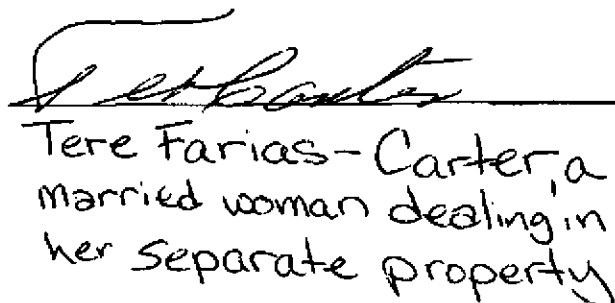 Tere Carter
Tere Farias-Carter, a
married woman dealing in
her separate property